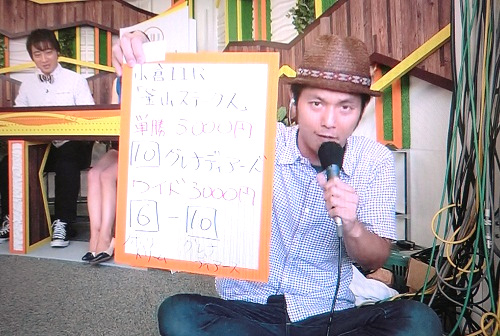 小倉11R
「釜山ステークス」
単勝 5000円
10 グレナディアーズ
ワイド 3000円
6 - 10